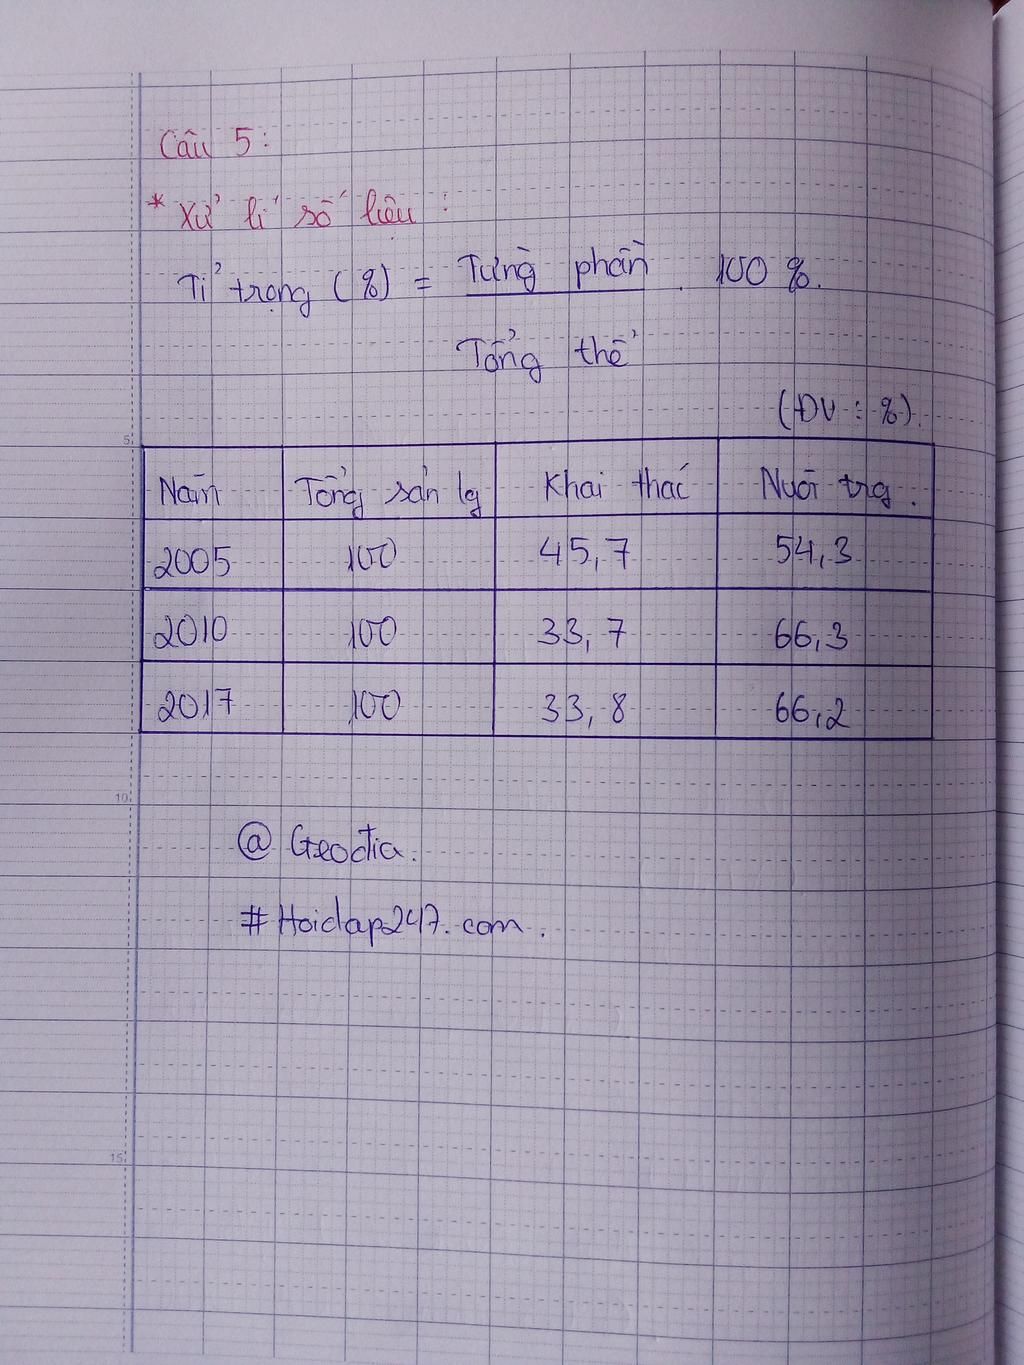 Câu 5:
* Xử lí số liệu:
Tỉ trọng (%) = Từng phần . 100 %.
Tổng thể
(ĐV : %).
Năm Tổng sản lg Khai thác Nuôi trg.
2005 100 45,7 54,3
2010 100 33,7 66,3
2017 100 33,8 66,2
@ Geođia.
# Hoidap247.com.
5
10
15